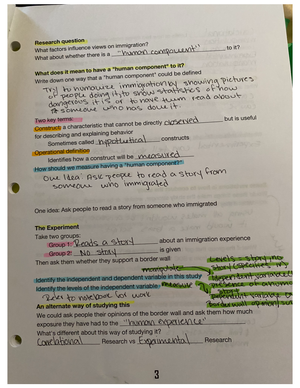 Research question
What factors influence views on immigration?
What about whether there is a "human component" to it?
What does it mean to have a "human component" to it?
Write down one way that a "human component" could be defined
Try to humanize immigration by showing pictures
of people doing it, to show statistics of how
dangerous it is or to have them read about
someone who has done it.
Two key terms:
Construct: a characteristic that cannot be directly observed but is useful
for describing and explaining behavior
Sometimes called hypothetical constructs
Operational definition
Identifies how a construct will be measured
How should we measure having a "human component?"
One Idea: Ask people to read a story from
someone who immigrated
One idea: Ask people to read a story from someone who immigrated
The Experiment
Take two groups:
Group 1: Reads a story about an immigration experience
Group 2: No story is given
Then ask them whether they support a border wall
manipulate
Identify the independent and dependent variable in this study
Identify the levels of the independent variable. measure
Refer to notebook for work
Levels = story, no
story
presence of
story
border wall opinion
An alternative way of studying this
We could ask people their opinions of the border wall and ask them how much
exposure they have had to the "human experience"
What's different about this way of studying it?
Correlational Research vs Experimental Research
3